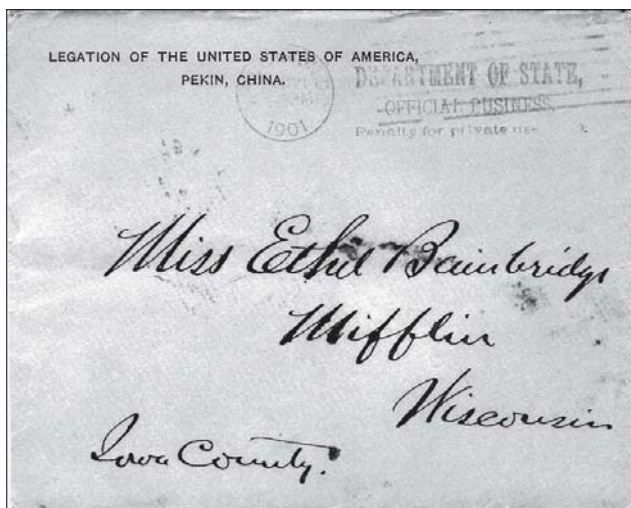 LEGATION OF THE UNITED STATES OF AMERICA,
PEKIN, CHINA.
1901
DEPARTMENT OF STATE,
OFFICIAL BUSINESS.
Penalty for private use
Miss Ethel Bainbridge
Mifflin
Wisconsin
Iowa County.